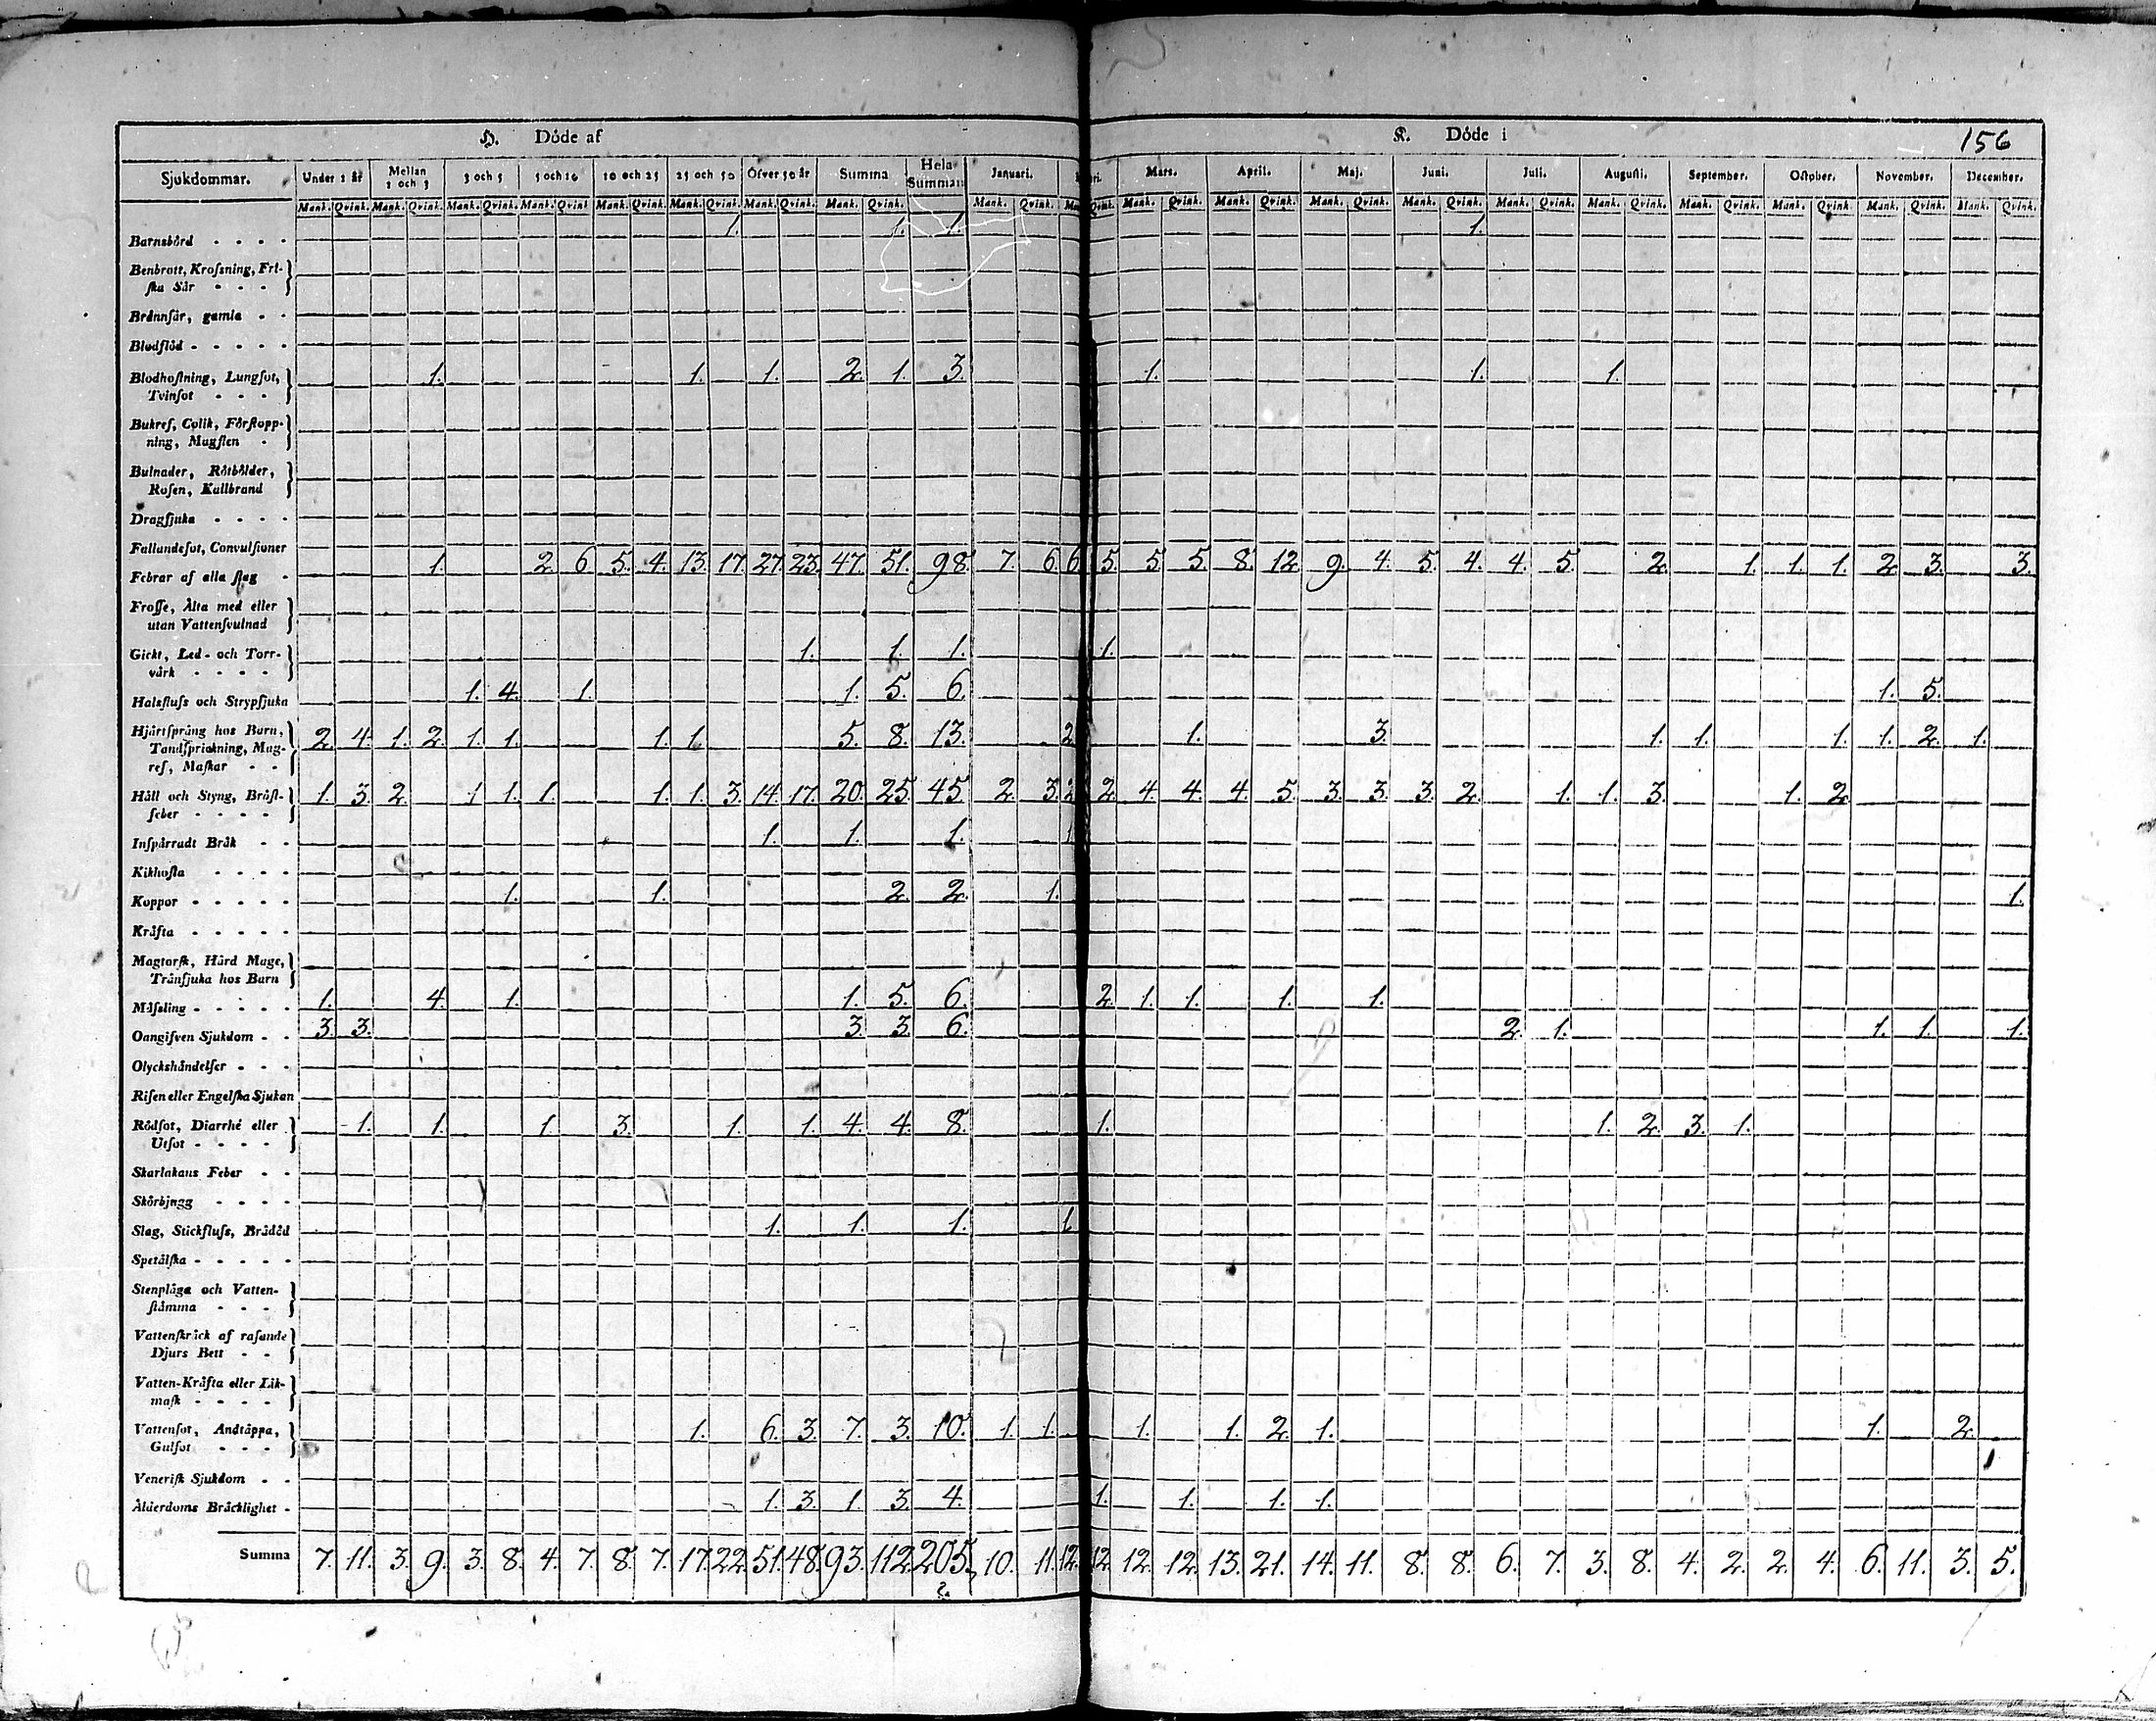 H. Döde af
K. Döde i 156
Sjukdommar. Under 1 år Mellan 1 och 3 3 och 5 5 och 10 10 och 25 25 och 50 Öfver 50 år Summa Hela Summan Januari. Mars. April. Maj. Juni. Juli. Augusti. September. October. November. December.
Mank. Qvink. Mank. Qvink. Mank. Qvink. Mank. Qvink Mank. Qvink. Mank. Qvink. Mank. Qvink. Mank. Qvink. Mank. Qvink. Qvink. Mank. Qvink. Mank. Qvink. Mank. Qvink. Mank. Qvink. Mank. Qvink. Mank. Qvink. Mank. Qvink. Mank. Qvink. Mank. Qvink. Mank. Qvink.
Barnsbörd - - - - 1. 1. 1. 1.
Benbrott, Krossning, Fri-
ska Sår - - -
Brännsår, gamla - -
Blodflöd - - - - -
Blodhostning, Lungsot, 1. 1. 1. 2. 1. 3. 1. 1. 1.
Tvinsot - - -
Bukref, Colik, Förstopp-
ning, Magsten -
Bulnader, Rötbölder,
Rosen, Kallbrand
Dragsjuka - - - -
Fallandesot, Convulsioner
Febrar af alla slag - 1. 2. 6. 5. 4. 13. 17. 27. 23. 47. 51. 98. 7. 6. 6. 5. 5. 5. 8. 12. 9. 4. 5. 4. 4. 5. 2. 1. 1. 1. 2. 3. 3.
Frosse, Älta med eller
utan Vattensvulnad
Gickt, Led- och Torr- 1. 1. 1. 1.
värk - - - -
Halsfluss och Strypsjuka 1. 4. 1. 1. 5. 6. 1. 5.
Hjärtsprång hos Barn, 2. 4. 1. 2. 1. 1. 1. 1. 5. 8. 13. 2. 1. 3. 1. 1. 1. 1. 2. 1.
Tandsprickning, Mag-
ref, Maskar - -
Håll och Styng, Bröst- 1. 3. 2. 1. 1. 1. 1. 1. 3. 14. 17. 20. 25. 45. 2. 3. 2. 2. 4. 4. 4. 5. 3. 3. 3. 2. 1. 1. 3. 1. 2.
feber - - - -
Inspärradt Bråk - - 1. 1. 1. 1.
Kikhosta - - - -
Koppor - - - - - 1. 1. 2. 2. 1. 1.
Kräfta - - - - -
Magtorsk, Hård Mage,
Tränsjuka hos Barn
Mässling - - - - - 1. 4. 1. 1. 5. 6. 2. 1. 1. 1. 1.
Oangifven Sjukdom - - 3. 3. 3. 3. 6. 2. 1. 1. 1. 1.
Olyckshändelser - - -
Risen eller Engelska Sjukan
Rödsot, Diarrhé eller 1. 1. 1. 3. 1. 1. 4. 4. 8. 1. 1. 2. 3. 1.
Utsot - - - -
Skarlakans Feber - -
Skörbjugg - - - -
Slag, Stickfluss, Brådöd 1. 1. 1. 1.
Spetälska - - - - -
Stenplåga och Vatten-
stämma - - -
Vattenskräck af rasande
Djurs Bett - -
Vatten-Kräfta eller Lik-
mask - - - -
Vattensot, Andtäppa, 1. 6. 3. 7. 3. 10. 1. 1. 1. 1. 2. 1. 1. 2.
Gulsot - - -
Venerisk Sjukdom - -
Ålderdoms Bräcklighet - 1. 3. 1. 3. 4. 1. 1. 1. 1.
Summa 7. 11. 3. 9. 3. 8. 4. 7. 8. 7. 17. 22. 51. 48. 93. 112. 205. 10. 11. 12. 12. 12. 12. 13. 21. 14. 11. 8. 8. 6. 7. 3. 8. 4. 2. 2. 4. 6. 11. 3. 5.